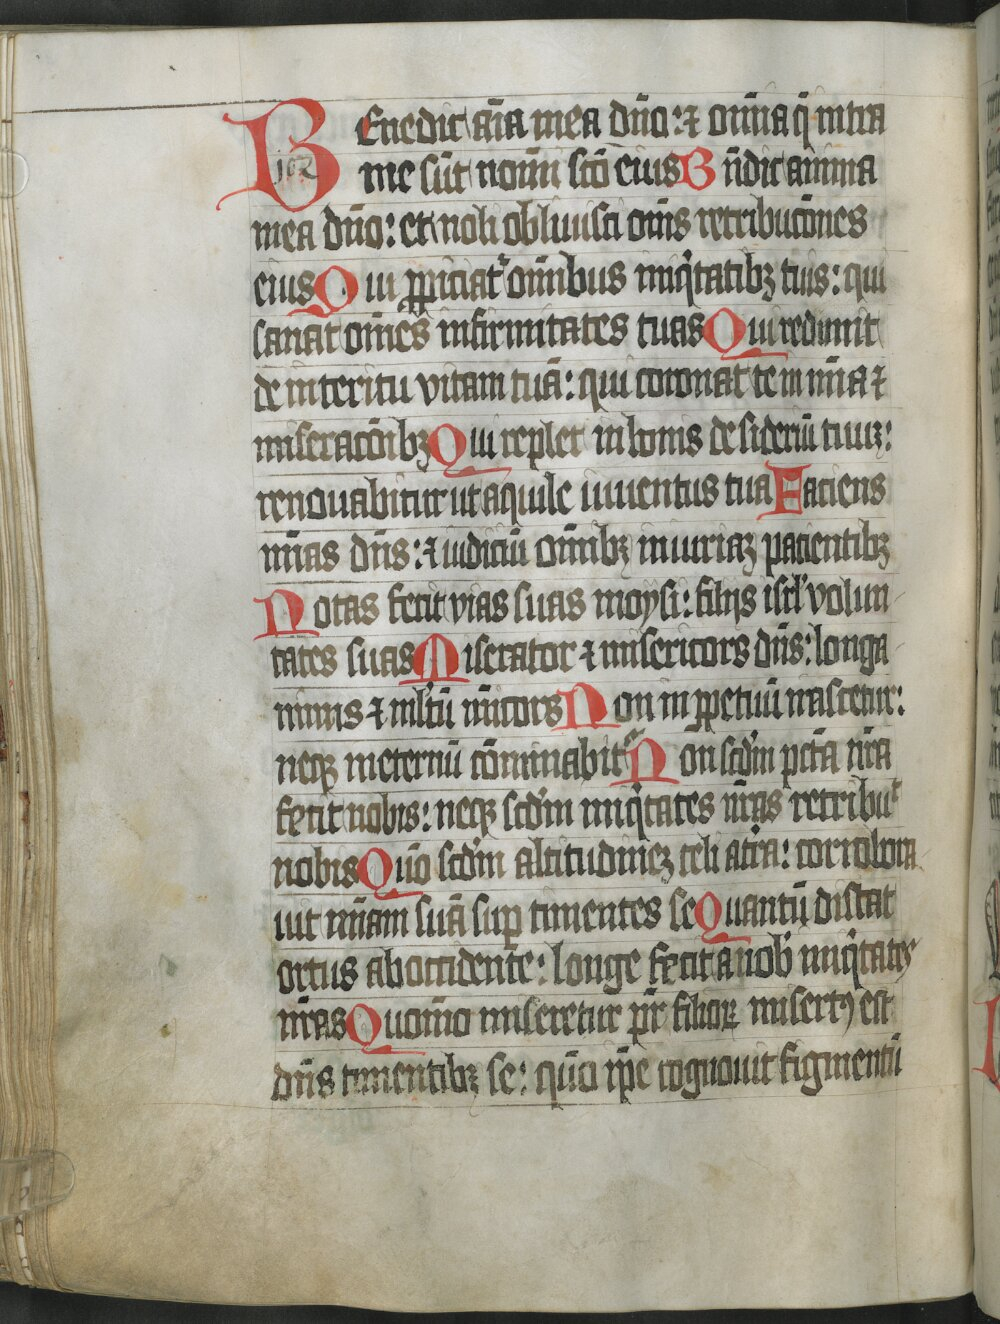 Benedic aīa mea dño: ⁊ om̄ia q̄ intra
102
me sūt nom̄i scō eius B n̄dic anima
mea dño: et noli obliuisci om̄s retribucōnes
eius Qui ꝓpiciat᷑ om̄ibus iniq̄tatibꝫ tuis: qui
sanat om̄es infirmitates tuas Qui redimit
de interitu vitam tuā: qui coronat te in mīa ⁊
miseracōibꝫ Qui replet in bonis desideriū tuuꝫ:
renouabitur ut aquile iuuentus tua Faciens
mīas dn̄s: ⁊ iudiciū om̄ibꝫ iniuriaꝫ pacientibꝫ
Notas fecit vias suas moysi: filijs isrl' volun
tates suas Miserator ⁊ misericors dn̄s: longa
nimis ⁊ ml'tū mīcors Non in ꝑpetuū irascetur:
neqꝫ in eternū cōminabit᷑ Non scd'm pctā nr̄a
fecit nobis: neqꝫ scd'm iniq̄tates nr̄as retribu͛
nobis Quō scd'm altitudineꝫ celi a t'ra: corrobora
uit mīam suā suꝑ timentes se Quantū distat
ortus ab occidente: longe fecit a nob' iniq̄tates
nr̄as Quom̄o miseretur pr̄ filioꝝ misertꝰ est
dn̄s timentibꝫ se: qūo ip̄e cognouit figmentū